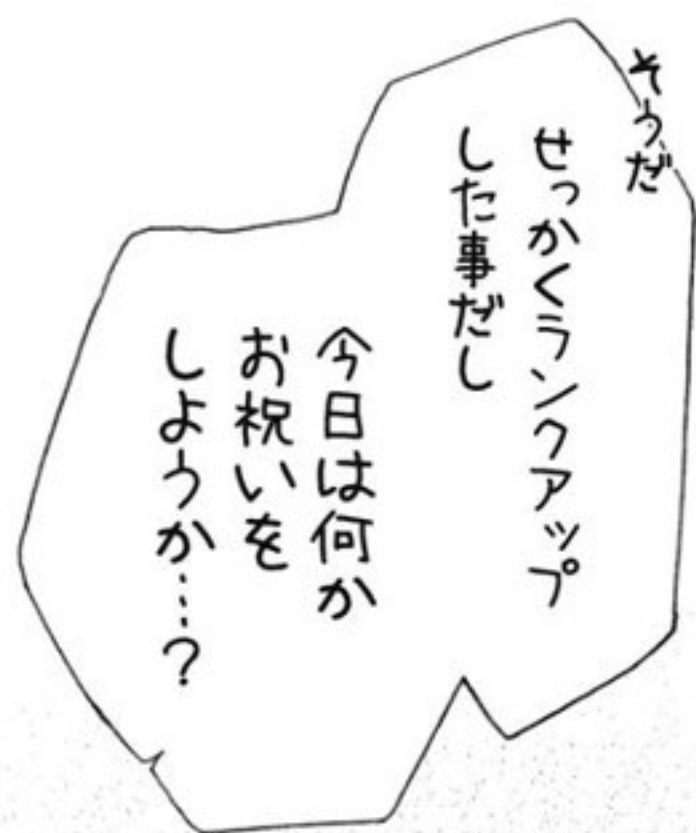 そうだ
せっかくランクアップ
した事だし
今日は何か
お祝いを
しようか…？